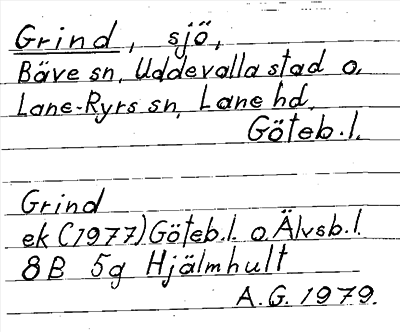 Grind, sjö,
Bäve sn, Uddevalla stad o.
Lane-Ryrs sn, Lane hd.
Göteb.l.
Grind
ek (1977) Göteb.l. o Älvsb.l.
8B 5g Hjälmhult
A.G. 1979.